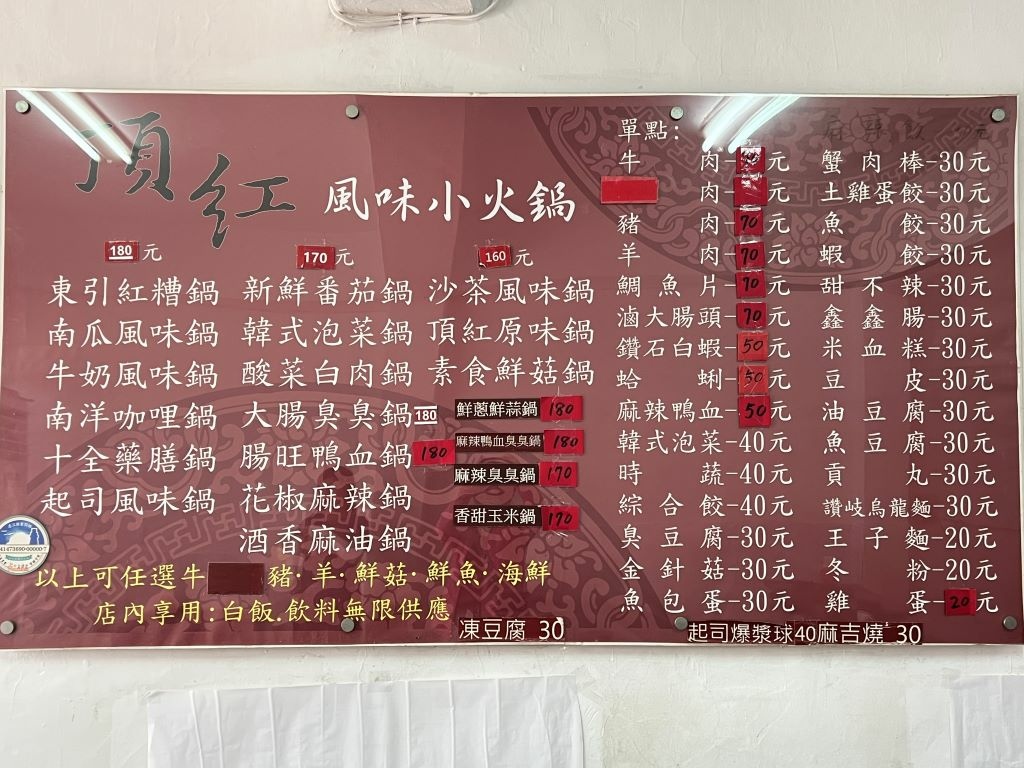 頂紅 風味小火鍋
180元
東引紅糟鍋
南瓜風味鍋
牛奶風味鍋
南洋咖哩鍋
十全藥膳鍋
起司風味鍋
170元
新鮮番茄鍋
韓式泡菜鍋
酸菜白肉鍋
大腸臭臭鍋180
腸旺鴨血鍋180
花椒麻辣鍋
酒香麻油鍋
160元
沙茶風味鍋
頂紅原味鍋
素食鮮菇鍋
鮮蔥鮮蒜鍋180
麻辣鴨血臭臭鍋180
麻辣臭臭鍋170
香甜玉米鍋170
以上可任選牛 豬·羊·鮮菇·鮮魚·海鮮
店內享用:白飯.飲料無限供應
凍豆腐 30
單點:
牛肉-元
肉-元
豬肉-70元
羊肉-70元
鯛魚片-70元
滷大腸頭-70元
鑽石白蝦-50元
蛤蜊-50元
麻辣鴨血-50元
韓式泡菜-40元
時蔬-40元
綜合餃-40元
臭豆腐-30元
金針菇-30元
魚包蛋-30元
蟹肉棒-30元
土雞蛋餃-30元
魚餃-30元
蝦餃-30元
甜不辣-30元
鑫鑫腸-30元
米血糕-30元
豆皮-30元
油豆腐-30元
魚豆腐-30元
貢丸-30元
讚岐烏龍麵-30元
王子麵-20元
冬粉-20元
雞蛋-20元
起司爆漿球40麻吉燒 30